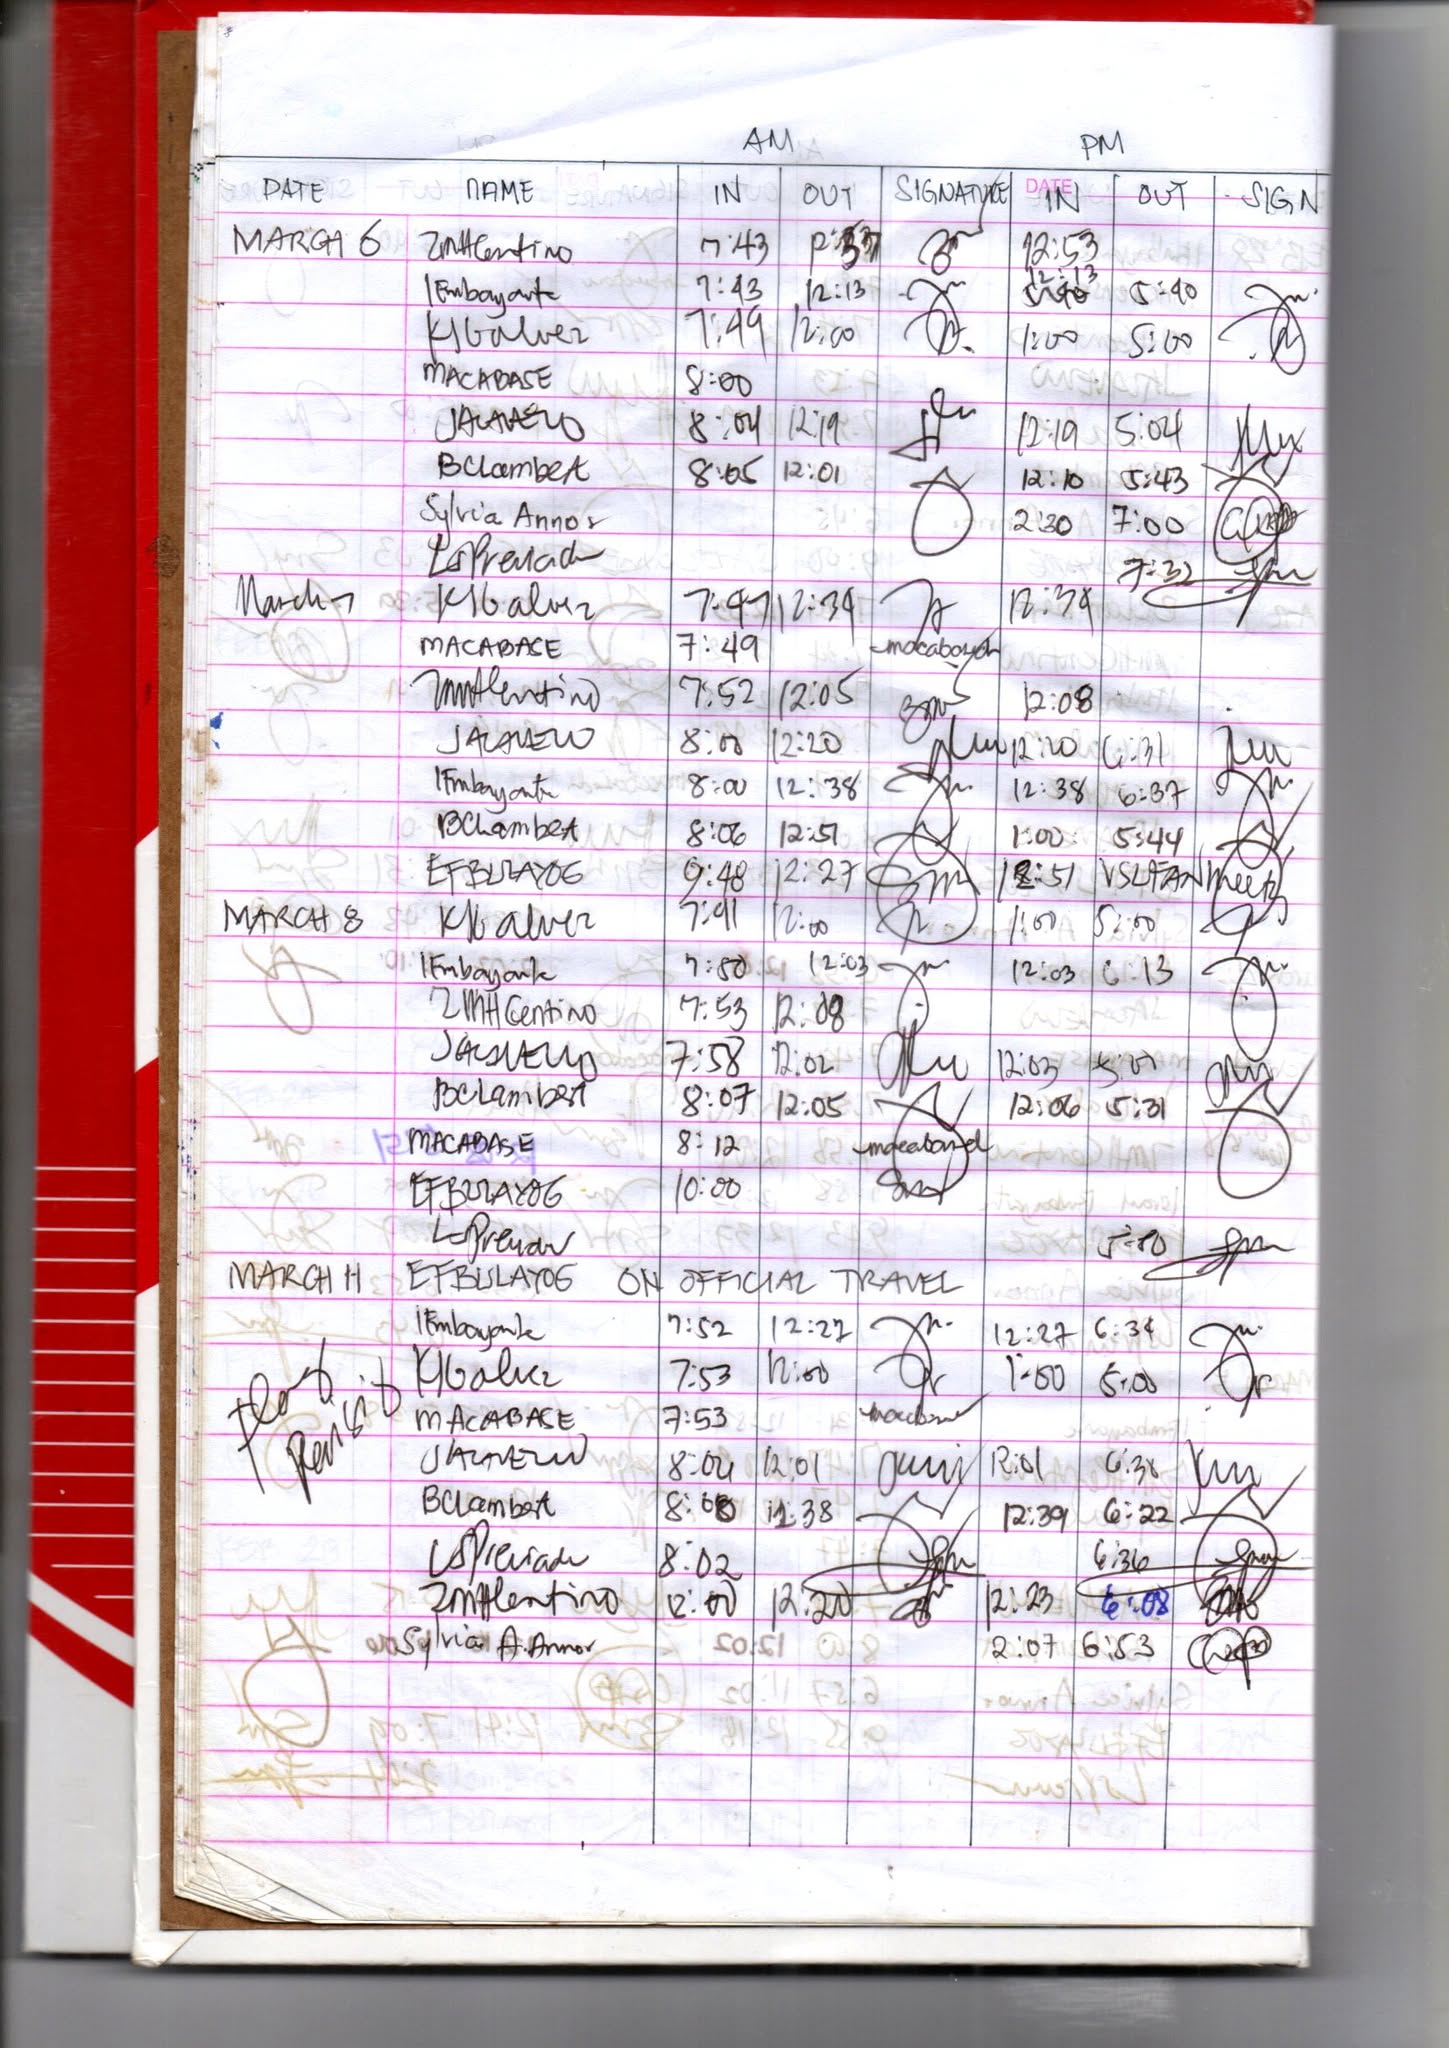 AM PM
DATE NAME IN OUT SIGNATURE DATE IN OUT SIGN
MARCH 6 ZMHCentino 7:43 12:53
IEmbayarte 7:43 12:13 12:13 5:40
KIGalvez 7:49 12:00 1:00 5:00
MACABASE 8:00
JALAVERO 8:04 12:19 12:19 5:04
BCLambert 8:05 12:01 12:10 5:43
Sylvia Annor 2:30 7:00
LSPreciado 7:32
March 7 KIGalvez 7:47 12:34 12:34
MACABASE 7:49
ZMHCentino 7:52 12:05 12:08
JALAVERO 8:00 12:20 12:20 6:31
IEmbayarte 8:00 12:38 12:38 6:37
BCLambert 8:06 12:51 1:00 5:44
EFBULAYOG 9:48 12:27 12:51 meeting
MARCH 8 KIGalvez 7:41 12:00 1:00 5:00
IEmbayarte 7:50 12:03 12:03 6:13
ZMHCentino 7:53 12:08
JALAVERO 7:58 12:02 12:03 5:01
BCLambert 8:07 12:05 12:06 5:31
MACABASE 8:12
EFBULAYOG 10:00
LSPreciado 5:50
MARCH 11 EFBULAYOG ON OFFICIAL TRAVEL
IEmbayarte 7:52 12:27 12:27 6:34
KIGalvez 7:53 12:00 1:00 5:00
MACABASE 7:53
JALAVERO 8:04 12:01 12:01 6:38
BCLambert 8:08 12:38 12:39 6:22
LSPreciado 8:02 6:36
ZMHCentino 12:00 12:20 12:23 6:08
Sylvia A. Annor 2:07 6:53